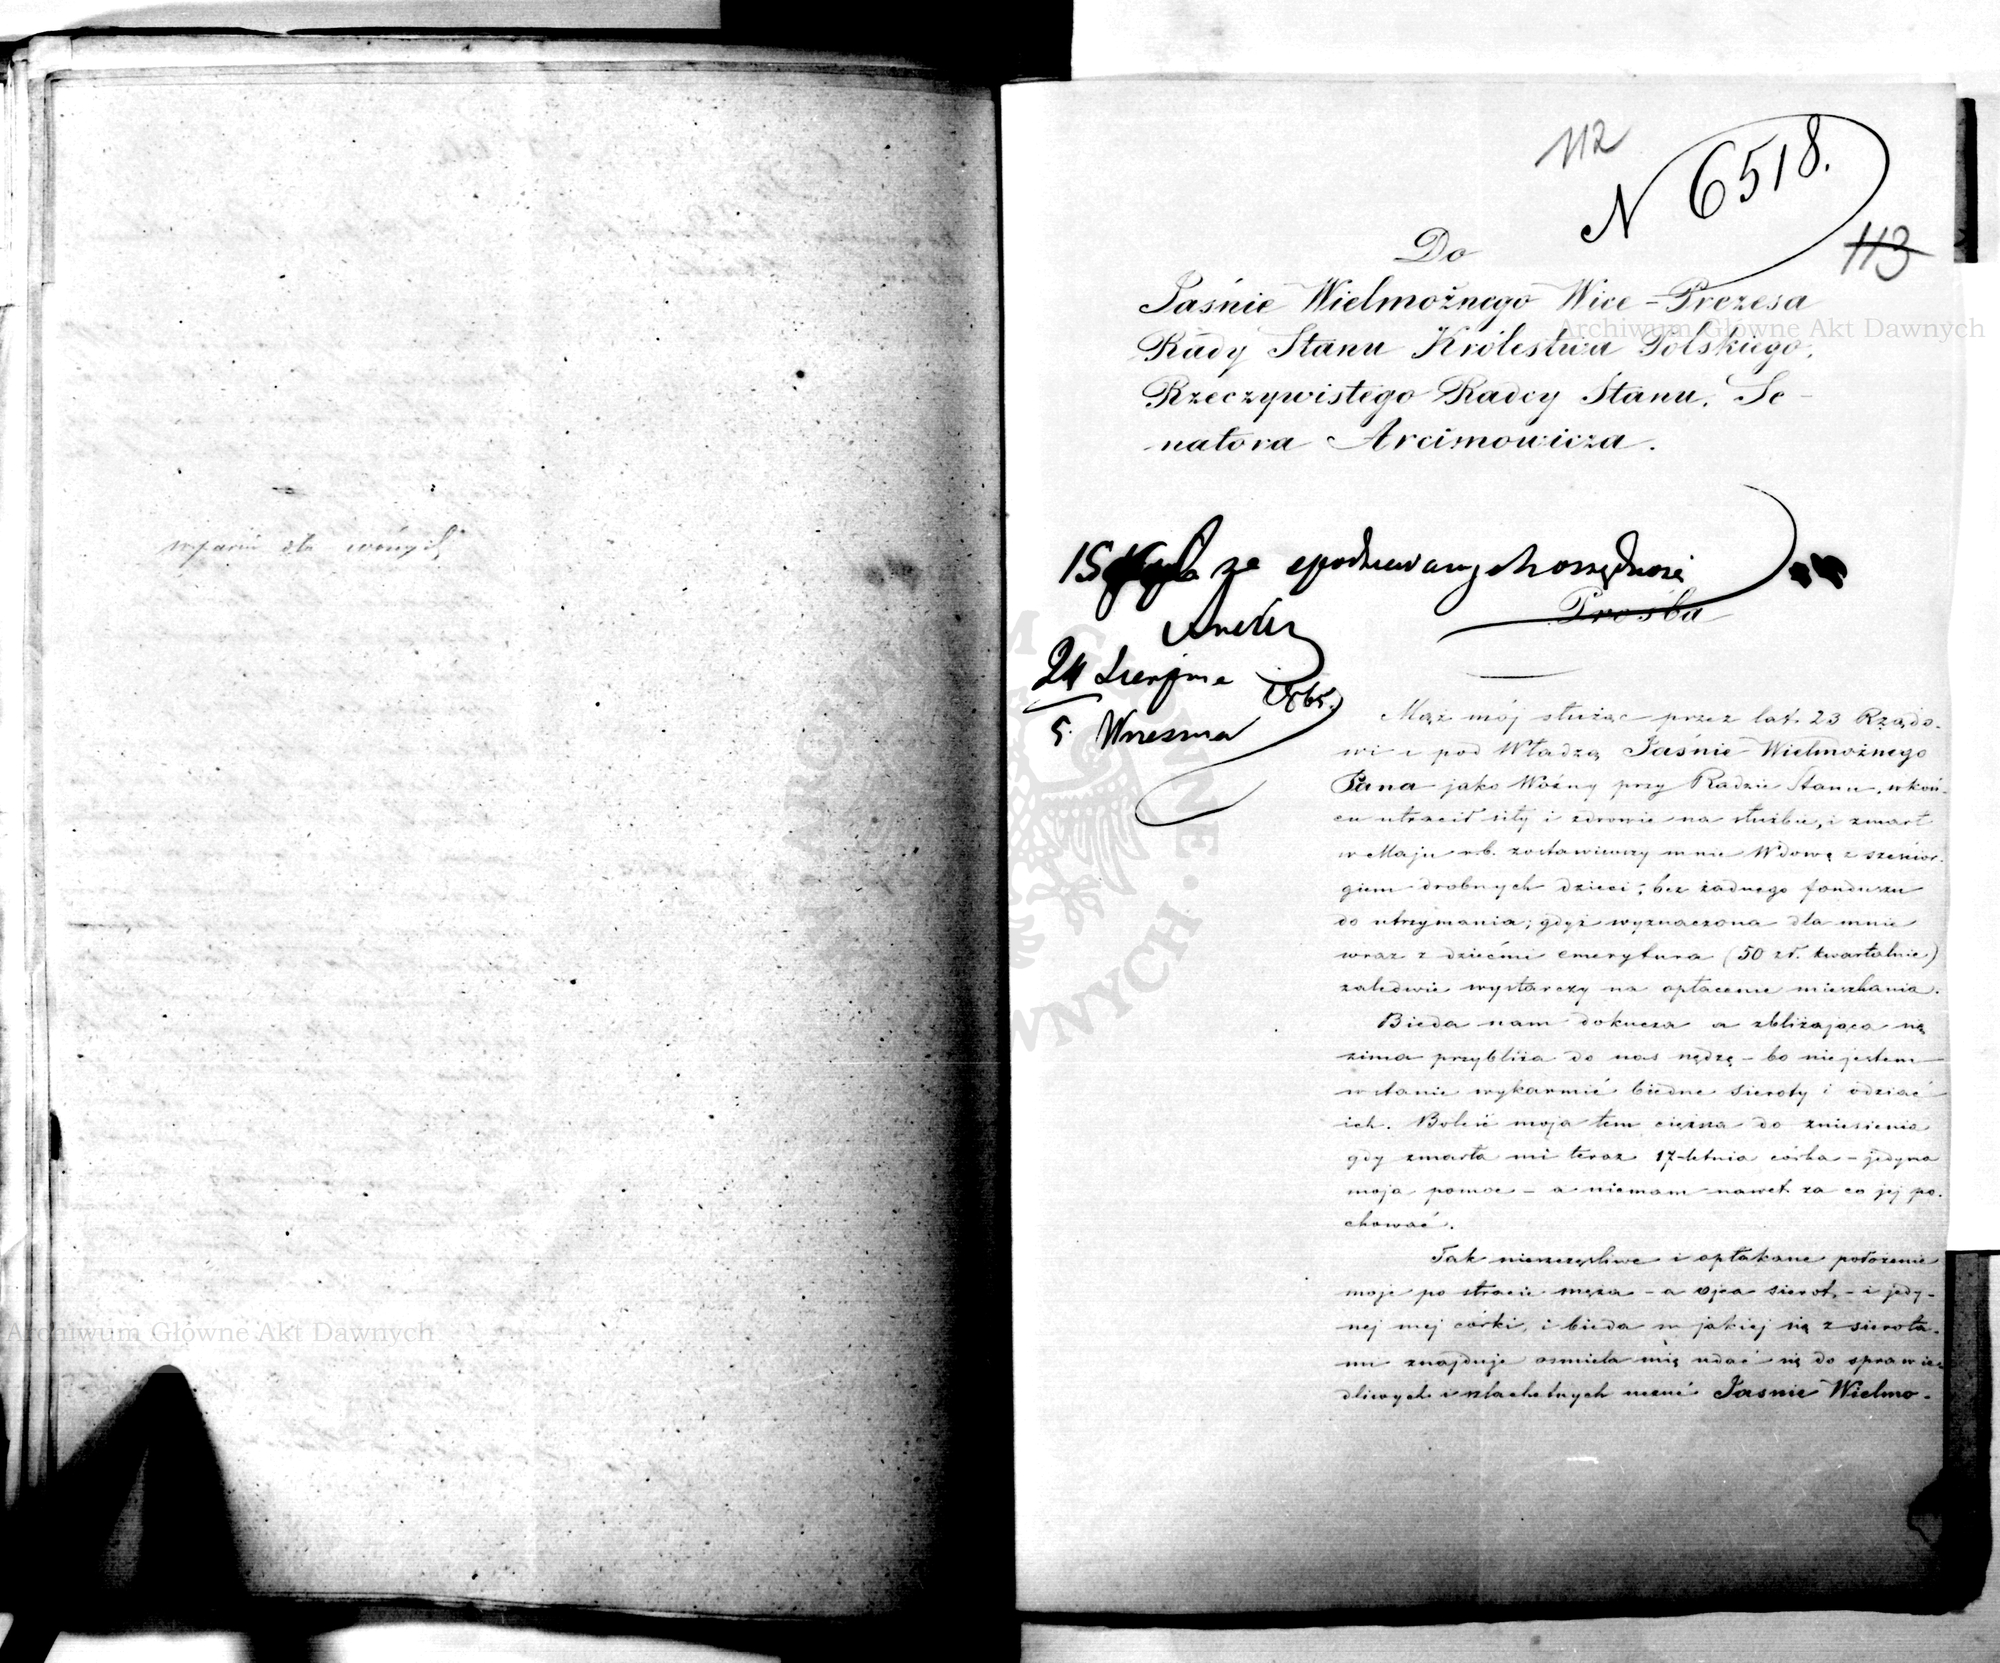 wsparcie dla woźnych
112
N 6518.
113
Do
Jaśnie Wielmożnego Wice-Prezesa
Rady Stanu Królestwa Polskiego,
Rzeczywistego Radcy Stanu, Se-
natora Arcimowicza.
15 ze spodziewanych oszczędności
24 Sierpnia 1865.
5. Wrzesnia
Prośba
Mąż mój służąc przez lat 23 Rządo-
wi i pod Władzą Jaśnie Wielmożnego
Pana jako Woźny przy Radzie Stanu, wkoń-
cu utracił siły i zdrowie na służbie, i zmarł
w Maju r.b. zostawiwszy mnie Wdowę z sześcior-
giem drobnych dzieci; bez żadnego funduszu
do utrzymania; gdyż wyznaczona dla mnie
wraz z dziećmi emerytura (50 zł. kwartalnie)
zaledwie wystarczy na opłacenie mieszkania.
Bieda nam dokucza a zbliżająca się
zima przybliża do nas nędzę - bo nie jestem
wstanie wykarmić biedne sieroty i odziać
ich. Boleść moja tem cięższa do zniesienia
gdy zmarła mi teraz 17-letnia córka - jedyna
moja pomoc - a niemam nawet za co jej po-
chować.
Tak nieszczęśliwe i opłakane położenie
moje po stracie męża - a ojca sierot, - i jedy-
nej mej córki, i bieda w jakiej się z sierota-
mi znajduje ośmiela mię udać się do sprawie-
dliwych i szlachetnych uczuć Jaśnie Wielmo-
Archiwum Główne Akt Dawnych
Archiwum Główne Akt Dawnych